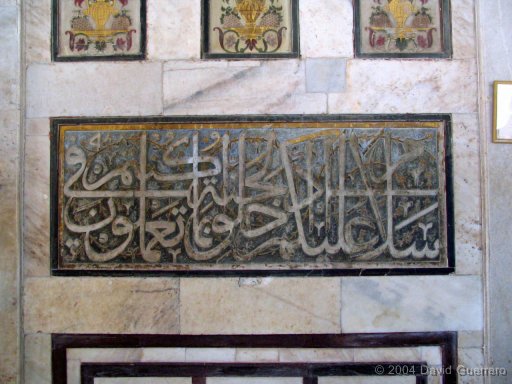 سلام عليكم ادخلوا الجنة بما كنتم تعملون
© 2004 David Guerrero